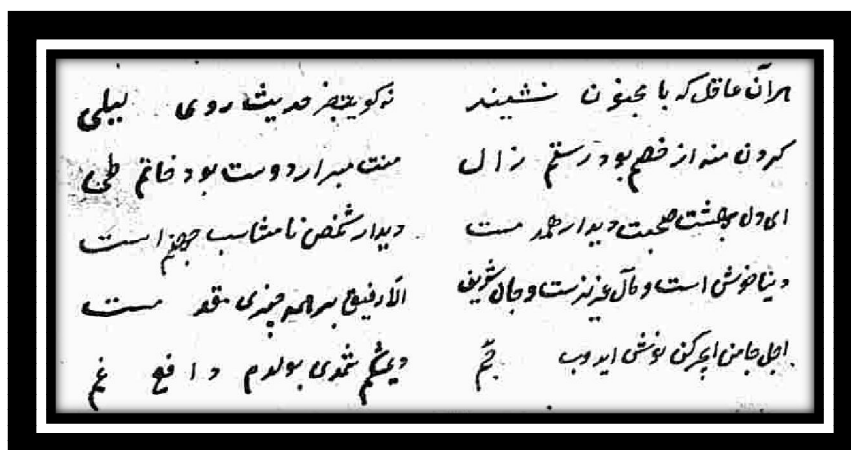 هر آن عاقل که با مجنون نشیند نگوید جز حدیث روی لیلی
گردن منه از خصم بود رستم زال منت مبر ار دوست بود حاتم طی
ای دل بهشت صحبت دیدار همد مست دیدار شخص نامناسب جهنم است
دنیا خوش است و مال عزیزست و جان شریف الا رفیق بر همه چیزی مقد مست
اجل جامن ایچرکن نوش ایدوب جم دیمش شمدی بولدم دافع غم